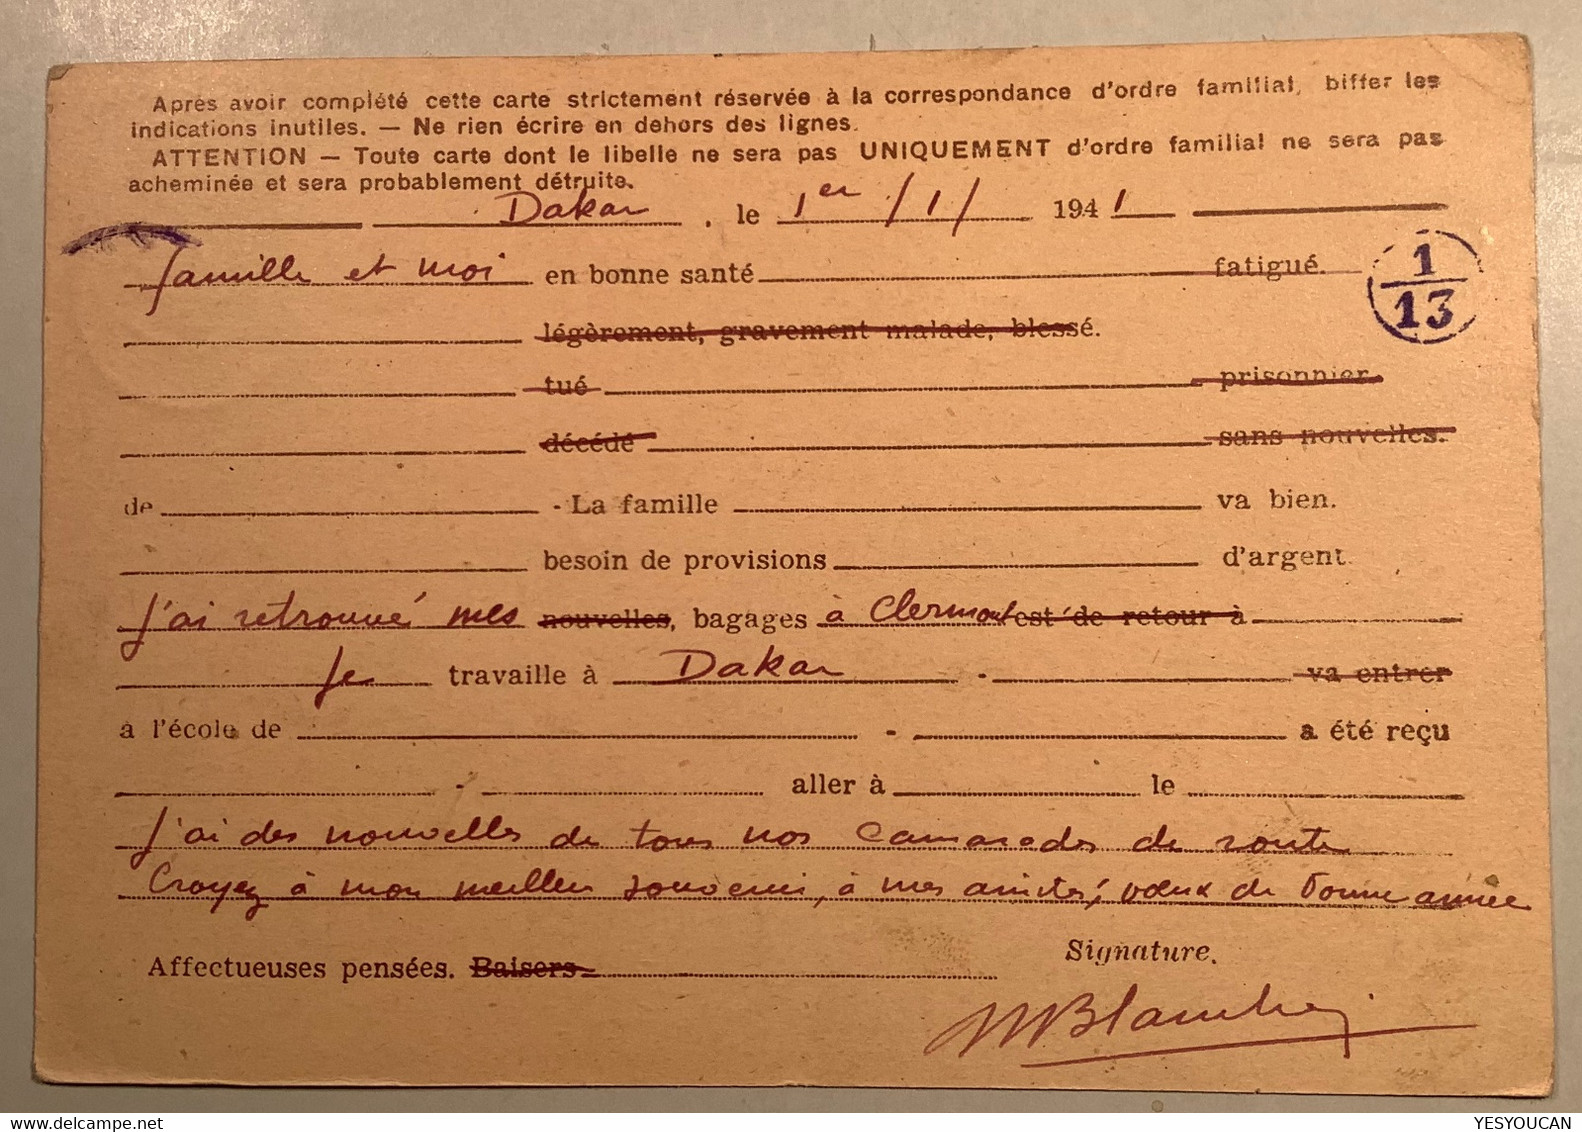 Après avoir complété cette carte strictement réservée à la correspondance d'ordre familial, biffer les
indications inutiles. — Ne rien écrire en dehors des lignes.
ATTENTION — Toute carte dont le libelle ne sera pas UNIQUEMENT d'ordre familial ne sera pas
acheminée et sera probablement détruite.
Dakar, le 1er/1/ 1941
famille et moi en bonne santé fatigué.
1
13
légèrement, gravement malade, blessé.
tué prisonnier
décédé sans nouvelles.
de - La famille va bien.
besoin de provisions d'argent.
J'ai retrouvé mes nouvelles, bagages à Clermont est de retour à
Je travaille à Dakar - va entrer
à l'école de - a été reçu
- aller à le
J'ai des nouvelles de tous nos camarades de route
Croyez à mon meilleur souvenir, à mes amitiés, voeux de bonne année
Affectueuses pensées. Baisers
Signature.
YESYOUCAN